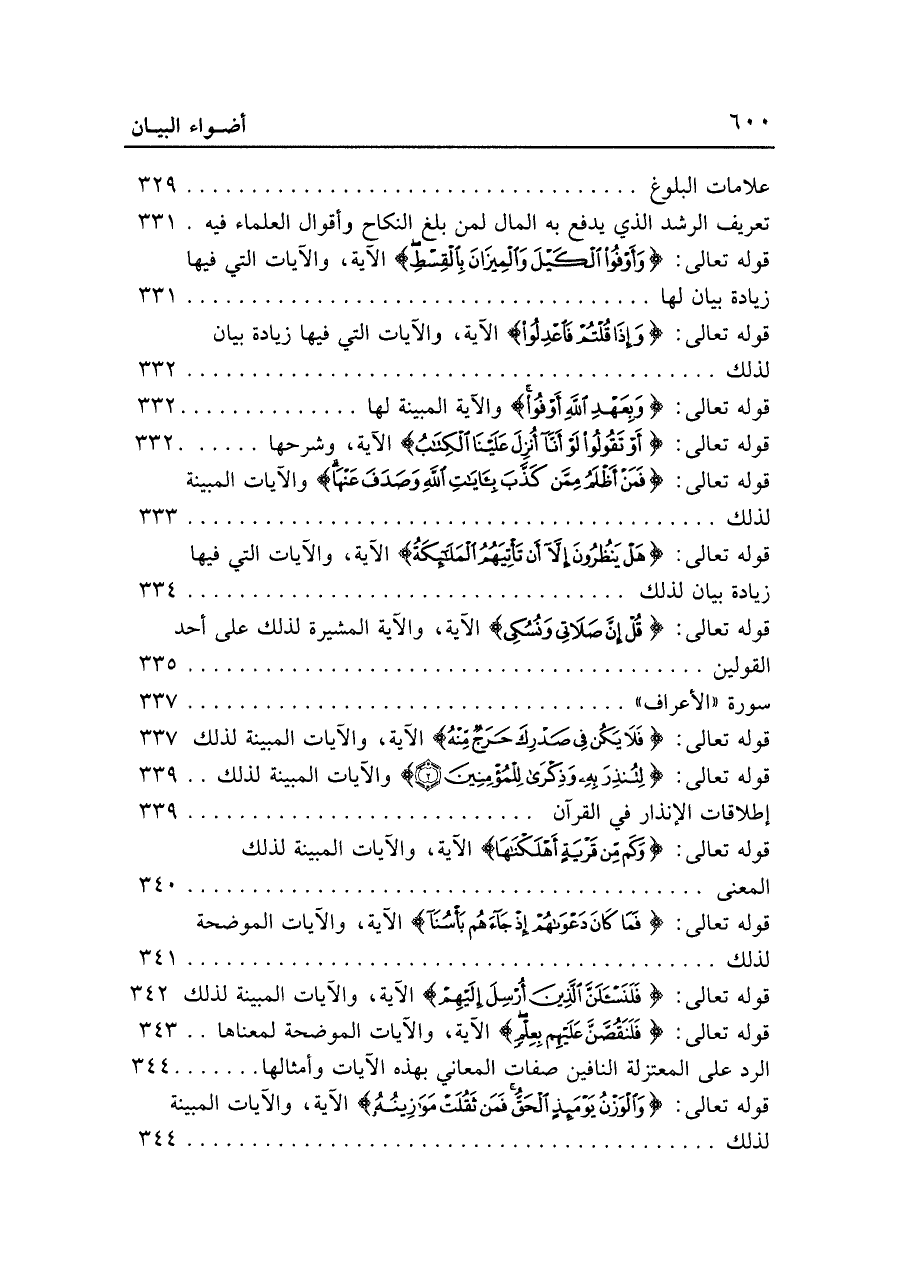 ٦٠٠ أضواء البيان
علامات البلوغ . . . . . . . . . . . . . . . . . . . . . . . . . . . . . . . . . . . ٣٢٩
تعريف الرشد الذي يدفع به المال لمن بلغ النكاح وأقوال العلماء فيه . ٣٣١
قوله تعالى: ﴿وَأَوْفُوا۟ ٱلْكَيْلَ وَٱلْمِيزَانَ بِٱلْقِسْطِۖ﴾ الآية، والآيات التي فيها
زيادة بيان لها . . . . . . . . . . . . . . . . . . . . . . . . . . . . . . . . . . . ٣٣١
قوله تعالى: ﴿وَإِذَا قُلْتُمْ فَٱعْدِلُوا۟﴾ الآية، والآيات التي فيها زيادة بيان
لذلك . . . . . . . . . . . . . . . . . . . . . . . . . . . . . . . . . . . . . . . . ٣٣٢
قوله تعالى: ﴿وَبِعَهْدِ ٱللَّهِ أَوْفُوا۟ۚ﴾ والآية المبينة لها . . . . . . . . . . . . . . ٣٣٢
قوله تعالى: ﴿أَوْ تَقُولُوا۟ لَوْ أَنَّآ أُنزِلَ عَلَيْنَا ٱلْكِتَٰبُ﴾ الآية، وشرحها . . . . . . ٣٣٢
قوله تعالى: ﴿فَمَنْ أَظْلَمُ مِمَّن كَذَّبَ بِـَٔايَٰتِ ٱللَّهِ وَصَدَفَ عَنْهَاۗ﴾ والآيات المبينة
لذلك . . . . . . . . . . . . . . . . . . . . . . . . . . . . . . . . . . . . . . . . ٣٣٣
قوله تعالى: ﴿هَلْ يَنظُرُونَ إِلَّآ أَن تَأْتِيَهُمُ ٱلْمَلَٰٓئِكَةُ﴾ الآية، والآيات التي فيها
زيادة بيان لذلك . . . . . . . . . . . . . . . . . . . . . . . . . . . . . . . . . ٣٣٤
قوله تعالى: ﴿قُلْ إِنَّ صَلَاتِى وَنُسُكِى﴾ الآية، والآية المشيرة لذلك على أحد
القولين . . . . . . . . . . . . . . . . . . . . . . . . . . . . . . . . . . . . . . . ٣٣٥
سورة «الأعراف» . . . . . . . . . . . . . . . . . . . . . . . . . . . . . . . . . ٣٣٧
قوله تعالى: ﴿فَلَا يَكُن فِى صَدْرِكَ حَرَجٌ مِّنْهُ﴾ الآية، والآيات المبينة لذلك ٣٣٧
قوله تعالى: ﴿لِتُنذِرَ بِهِۦ وَذِكْرَىٰ لِلْمُؤْمِنِينَ ۝٢﴾ والآيات المبينة لذلك . . ٣٣٩
إطلاقات الإنذار في القرآن . . . . . . . . . . . . . . . . . . . . . . . . . . . ٣٣٩
قوله تعالى: ﴿وَكَم مِّن قَرْيَةٍ أَهْلَكْنَٰهَا﴾ الآية، والآيات المبينة لذلك
المعنى . . . . . . . . . . . . . . . . . . . . . . . . . . . . . . . . . . . . . . . ٣٤٠
قوله تعالى: ﴿فَمَا كَانَ دَعْوَىٰهُمْ إِذْ جَآءَهُم بَأْسُنَآ﴾ الآية، والآيات الموضحة
لذلك . . . . . . . . . . . . . . . . . . . . . . . . . . . . . . . . . . . . . . . . ٣٤١
قوله تعالى: ﴿فَلَنَسْـَٔلَنَّ ٱلَّذِينَ أُرْسِلَ إِلَيْهِمْ﴾ الآية، والآيات المبينة لذلك ٣٤٢
قوله تعالى: ﴿فَلَنَقُصَّنَّ عَلَيْهِم بِعِلْمٍۖ﴾ الآية، والآيات الموضحة لمعناها . . ٣٤٣
الرد على المعتزلة النافين صفات المعاني بهذه الآيات وأمثالها. . . . . . . ٣٤٤
قوله تعالى: ﴿وَٱلْوَزْنُ يَوْمَئِذٍ ٱلْحَقُّۚ فَمَن ثَقُلَتْ مَوَٰزِينُهُۥ﴾ الآية، والآيات المبينة
لذلك . . . . . . . . . . . . . . . . . . . . . . . . . . . . . . . . . . . . . . . . ٣٤٤